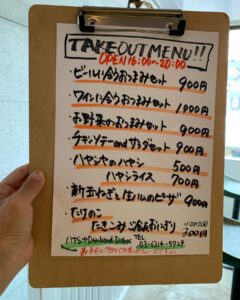 TAKEOUT MENU!!!
OPEN 16:00~20:00
・ビールに合うおつまみセット 900円
・ワインに合うおつまみセット 1000円
・お野菜のおつまみセット 900円
・チキンソテーandサラダセット 900円
・ハヤシヤのハヤシ 500円
ハヤシライス 700円
・新玉ねぎと生ハムのピザ 900円
・たけのこ
たきこみごはんおにぎり 300円
ハヤシヤ Drink and Dishes TEL